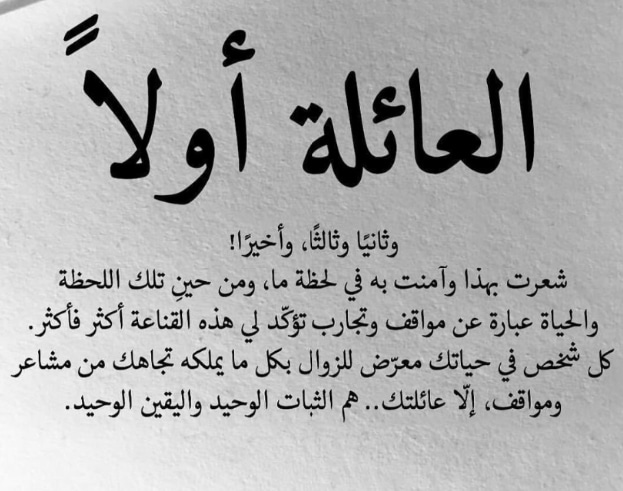 العائلة أولاً
وثانيًا وثالثًا، وأخيرًا!
شعرت بهذا وآمنت به في لحظة ما، ومن حينِ تلك اللحظة
والحياة عبارة عن مواقف وتجارب تؤكّد لي هذه القناعة أكثر فأكثر.
كل شخص في حياتك معرّض للزوال بكل ما يملكه تجاهك من مشاعر
ومواقف، إلّا عائلتك.. هم الثبات الوحيد واليقين الوحيد.